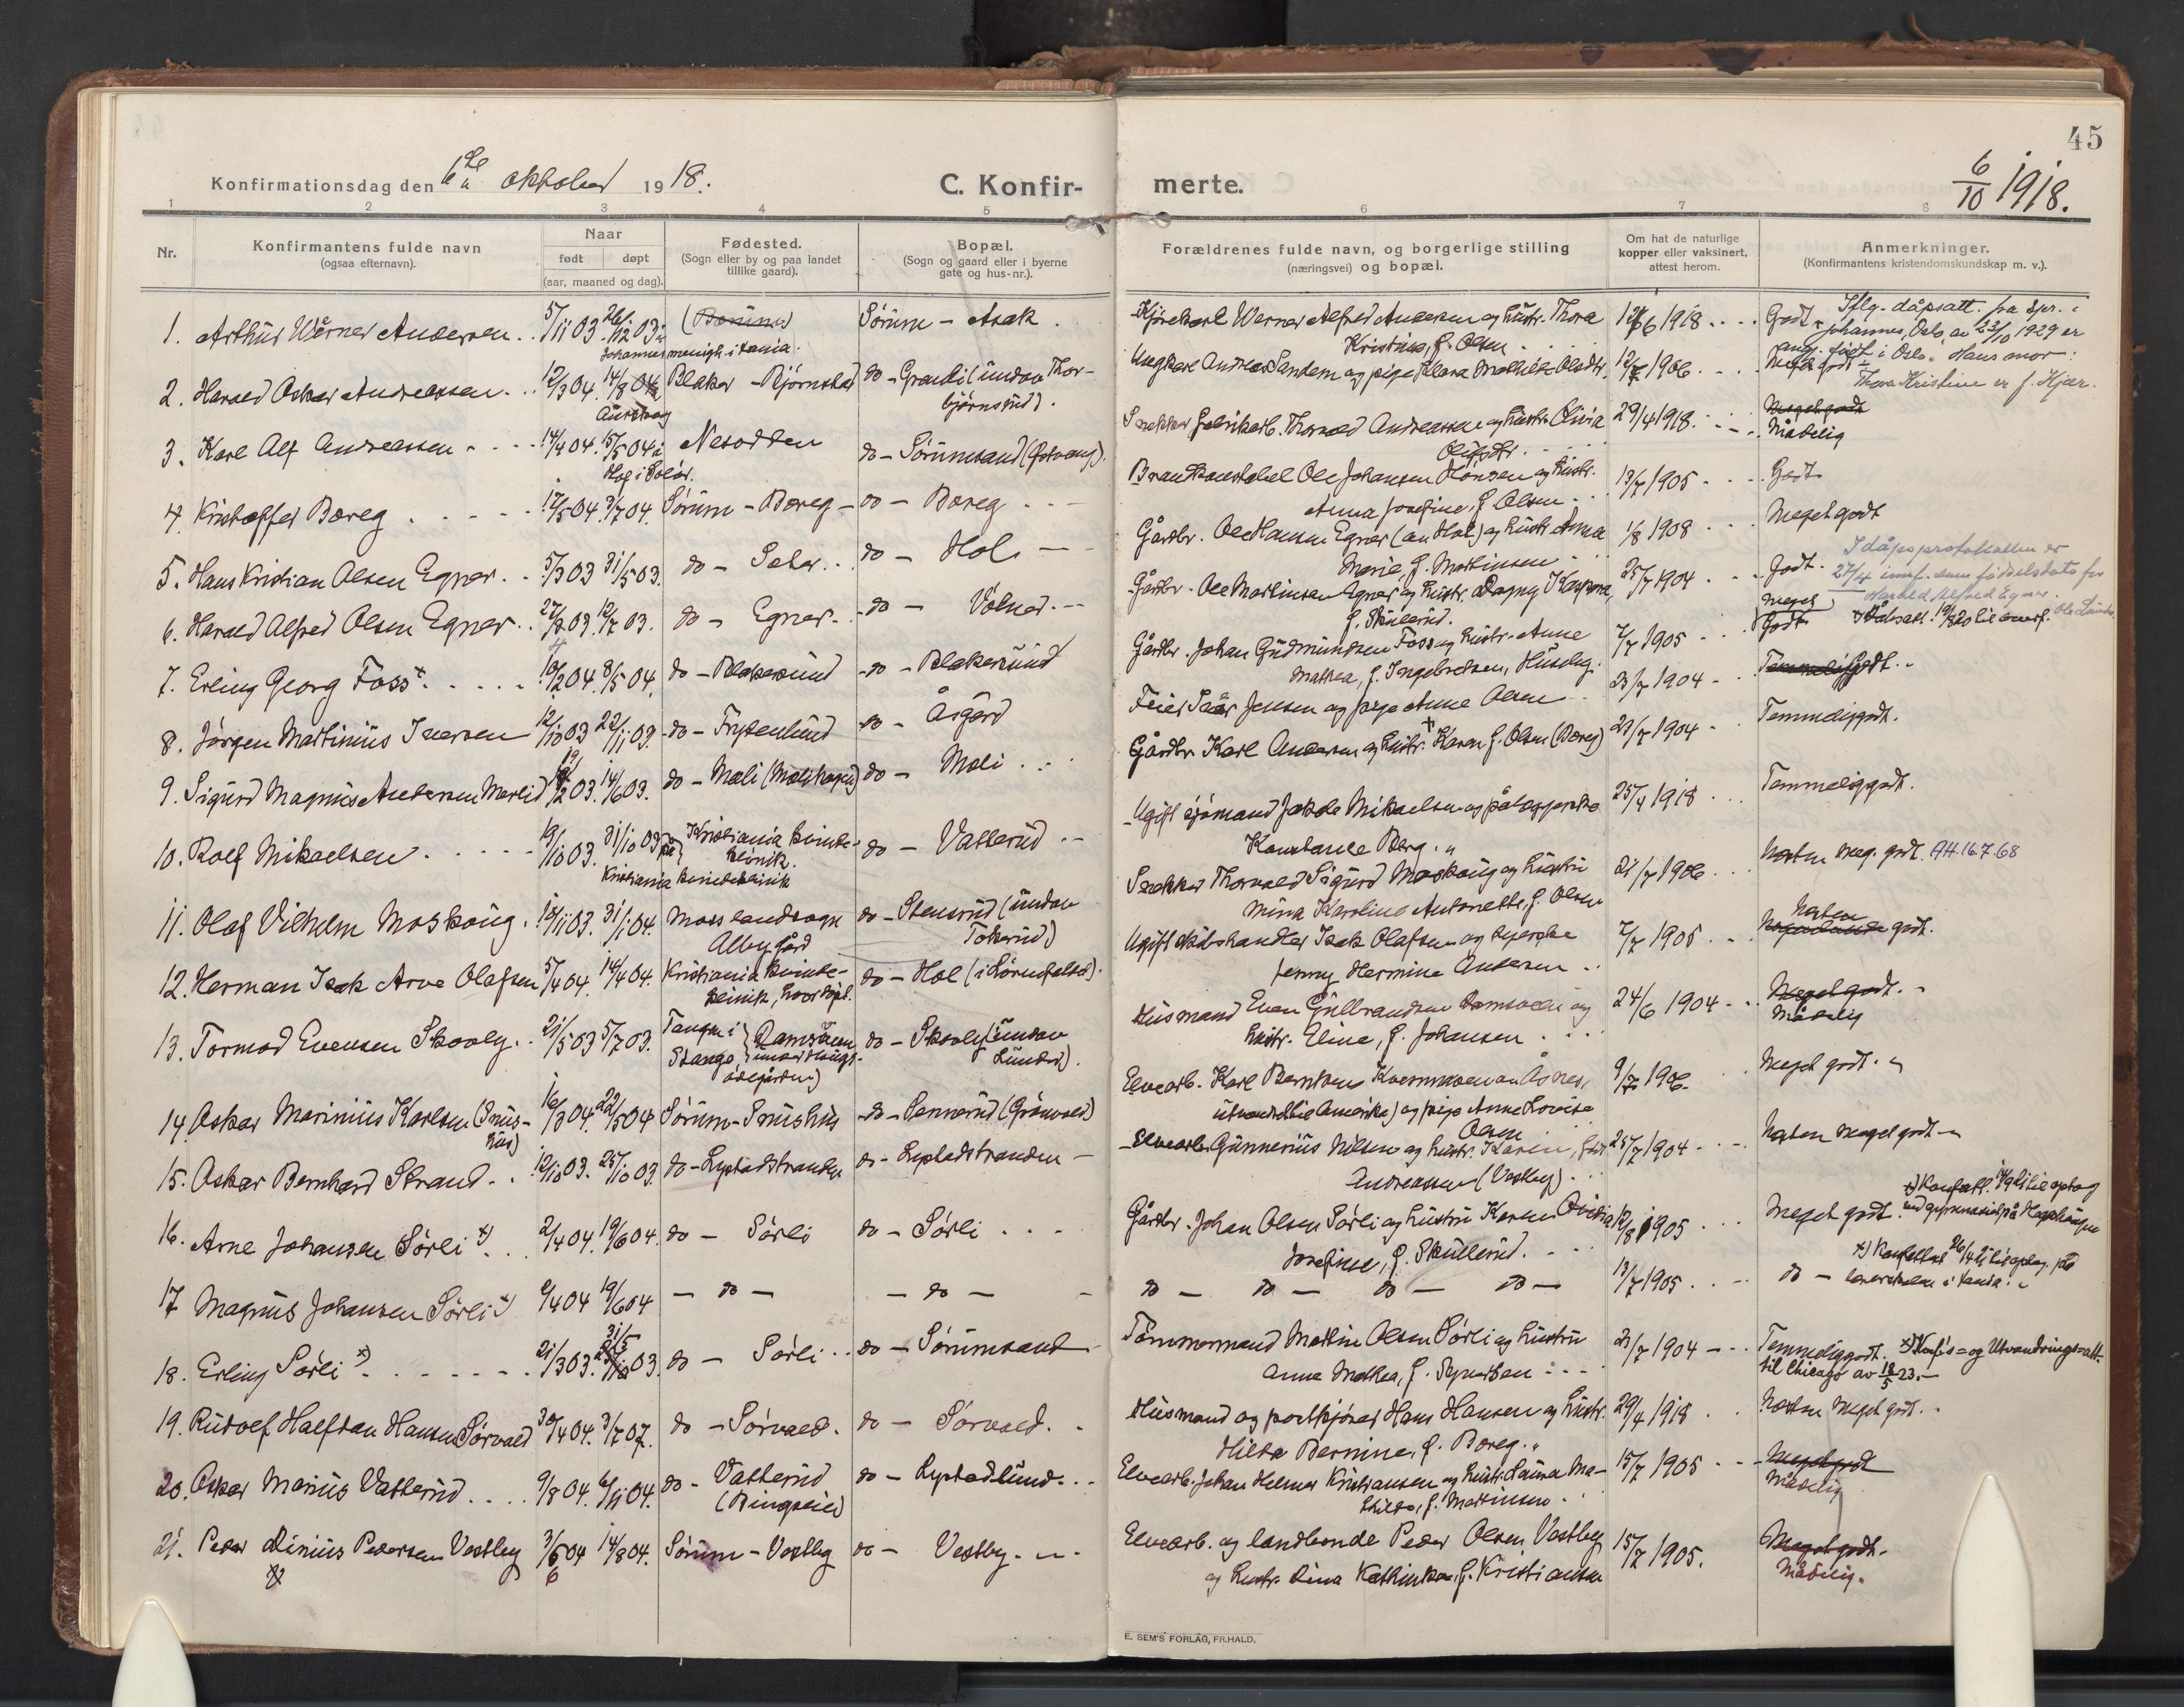 45
Konfirmationsdag den 6te oktober 1918.
C. Konfir-
merte.
6/10 1918.
1 2 3 4 5 6 7 8
Nr.
Konfirmantens fulde navn
(ogsaa efternavn).
Naar
født døpt
(aar, maaned og dag).
Fødested.
(Sogn eller by og paa landet
tillike gaard).
Bopæl.
(Sogn og gaard eller i byerne
gate og hus-nr.).
Forældrenes fulde navn, og borgerlige stilling
(næringsvei) og bopæl.
Om hat de naturlige
kopper eller vaksinert,
attest herom.
Anmerkninger.
(Konfirmantens kristendomskundskap m. v.).
1. Arthur Werner Andersen 5/11 03 26/12 03 (Børum) Sørum - Asak
Johannes menigh. i Kania.
Kjørekarl Werner Alfred Andersen og hustr. Thora
Kristine, f. Olsen
12/6 1918 Godt
Iflg. dåpsatt. fra Spr. i
Johannes, Oslo, av 23/10 1929 er
ang. født i Oslo. Hans mor:
Thora Kristine er f. Kjær.
2. Harald Oskar Andreassen 12/3 04. 14/8 04 Blaker - Bjørnstad do - Grandi (undav Thor-
bjørnsrud).
Aurskog
Ungkarl Andreas Sandem og pige Klara Mathilde Olsdtr. 12/7 1906 Meget godt
3. Karl Alf Andreassen 14/4 04. 15/5 04 i Nesodden do - Sørumsand (Østvang).
Hof i Solør.
Snekker Fabrikarb. Thorvald Andreassen og hustr. Olivia
Olufsdtr.
29/4 1918. Meget godt
Mådelig
4. Kristoffer Børeg 12/5 04. 3/7 04. Sørum - Børeg - do - Børeg
Brandkonstabel Ole Johansen Hønsen og hustr.
Anna Josefine, f. Olsen
13/7 1905 Godt
5. Hans Kristian Olsen Egner 5/3 03 31/5 03. do - Seter do - Hol
Gårdbr. Ole Hansen Egner (an Hol) og hustr. Anna
Marie, f. Martinsen
1/8 1908 Meget godt
6. Harald Alfred Olsen Egner 27/3 03. 12/7 03. do - Egner do - Vølner
4
Gårdbr. Ole Martinsen Egner og hustr. Dagny Kaspara,
f. Skullerud.
25/7 1904 Godt.
I dåpsprotokollen er
27/4 innf. som fødselsdato for
Harald Alfred Egner. Ole Lund
7. Erling Georg Foss x 10/2 04. 8/5 04. do - Blakersund do - Blakersund
Gårdbr. Johan Gudmundsen Foss og hustr. Anne
Mathea, f. Ingebretsen, Huseby.
7/7 1905 Meget
Godt
8. Jørgen Martinius Iversen 12/10 03 22/11 03. do - Frydenlund do - Åsgård
Feier Iver Jensen og pige Anne Olsen 23/7 1904 Temmelig godt.
9. Sigurd Magnus Andersen Mœlid 12/2 03. 14/6 03. do - Mœli (Mœlihagen) do - Mœli
Gårdbr. Karl Andersen og hustr. Karen f. Olsen (Børeg) 23/7 1904 Temmelig godt.
10. Rolf Mikaelsen 19/10 03. 31/10 03 på } Kristiania kvinde-
klinik.
do - Vatterud
Kristiania kvindeklinik
Ugift sjømand Jakob Mikaelsen og pålæggerske
Konstance Berg.
25/4 1918 Temmelig godt.
11. Olaf Vilhelm Moskaug 18/11 03. 31/1 04. Moss landsogn
Alby gård
do - Stensrud (undav
Tokerud)
Snekker Thorvald Sigurd Moskaug og hustru
Mina Karoline Antonette, f. Olsen
21/7 1906 Næsten meg. godt. AH.16.7.68
12. Herman Isak Arve Olafsen 5/4 04. 14/4 04. Kristiania kvinde-
klinik, hovedspl.
do - Hol (i Sørumfaltet).
Ugift skibshandler Isak Olafsen og syerske
Jenny Hermine Andersen
7/7 1905 Næsten
godt.
13. Tormod Evensen Skovly 21/5 03 5/7 03. Tangen i
Stange } Ramsøen
ødegården)
do - Skovly (undav
Lunder).
Husmand Even Gulbrandsen Ramsøen og
hustr. Eline, f. Johansen
24/6 1904 Meget godt.
Mådelig
14 Oskar Marinius Karlsen (Snus-
hus) 16/3 04. 22/5 04 Sørum - Snushus do - Rennerud (Grønvold)
Elvearb. Karl Berntsen Kvernmoen av Åsnes,
utvandret til Amerika) og pige Anne Lovise
Olsen
9/7 1906 Meget godt.
15. Oskar Bernhard Strand 12/10 03. 25/10 03. do - Lystadstranden do - Lystadstranden
Elvearb. Gunnerius Nilsen og hustr. Karen, født
Andreassen (Vestby)
25/7 1904 Næsten meget godt
16. Arne Johansen Sørli x) 2/4 04. 19/6 04. do - Sørli do - Sørli
Gårdbr. Johan Olsen Sørli og hustru Karen Ovidia
Josefine, f. Skullerud.
12/8 1905 Meget godt
x) Konfatt. 14/9 21 til optag
17 Magnus Johansen Sørli x) 2/4 04 19/6 04 - do - - do -
do - do - do - do - 13/7 1905 do -
x) Konfattest 26/4 21 til optag. på
lærerskolen i Kania.
18. Erling Sørli x) 21/3 03. 31/5 03. do - Sørli do - Sørumsand
Tømmermand Martin Olsen Sørli og hustru
Anna Mathea, f. Syversen
23/7 1904 Temmelig godt. x) Konfir- og Utvandringsatt.
til Chicago av 18/5 23.
19. Rudolf Halfdan Hansen Sørvald 30/4 04. 3/7 07. do - Sørvald. do - Sørvald.
Husmand og postkjører Hans Hansen og hustr.
Hilda Bernine, f. Børeg.
29/4 1918 Næsten meget godt.
20. Oskar Marius Vatterud 9/8 04. 6/11 04. do - Vatterud
(Ringseie)
do - Lystadlund
Elvearb. Johan Helmer Kristiansen og hustr. Laura Ma-
thilde, f. Martinsen
15/7 1905 Meget godt
Mådelig
21. Peder Linius Pedersen Vestby 3/6 04 14/8 04. Sørum - Vestby do - Vestby
6
Elvearb. og landbonde Peder Olsen Vestby
og hustr. Lina Kathinka, f. Kristiansen
15/7 1905. Meget godt.
Mådelig.
E. SEM'S FORLAG, FR.HALD.